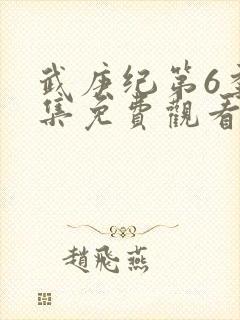 武庚纪第6季
集免費觀看
趙飛燕